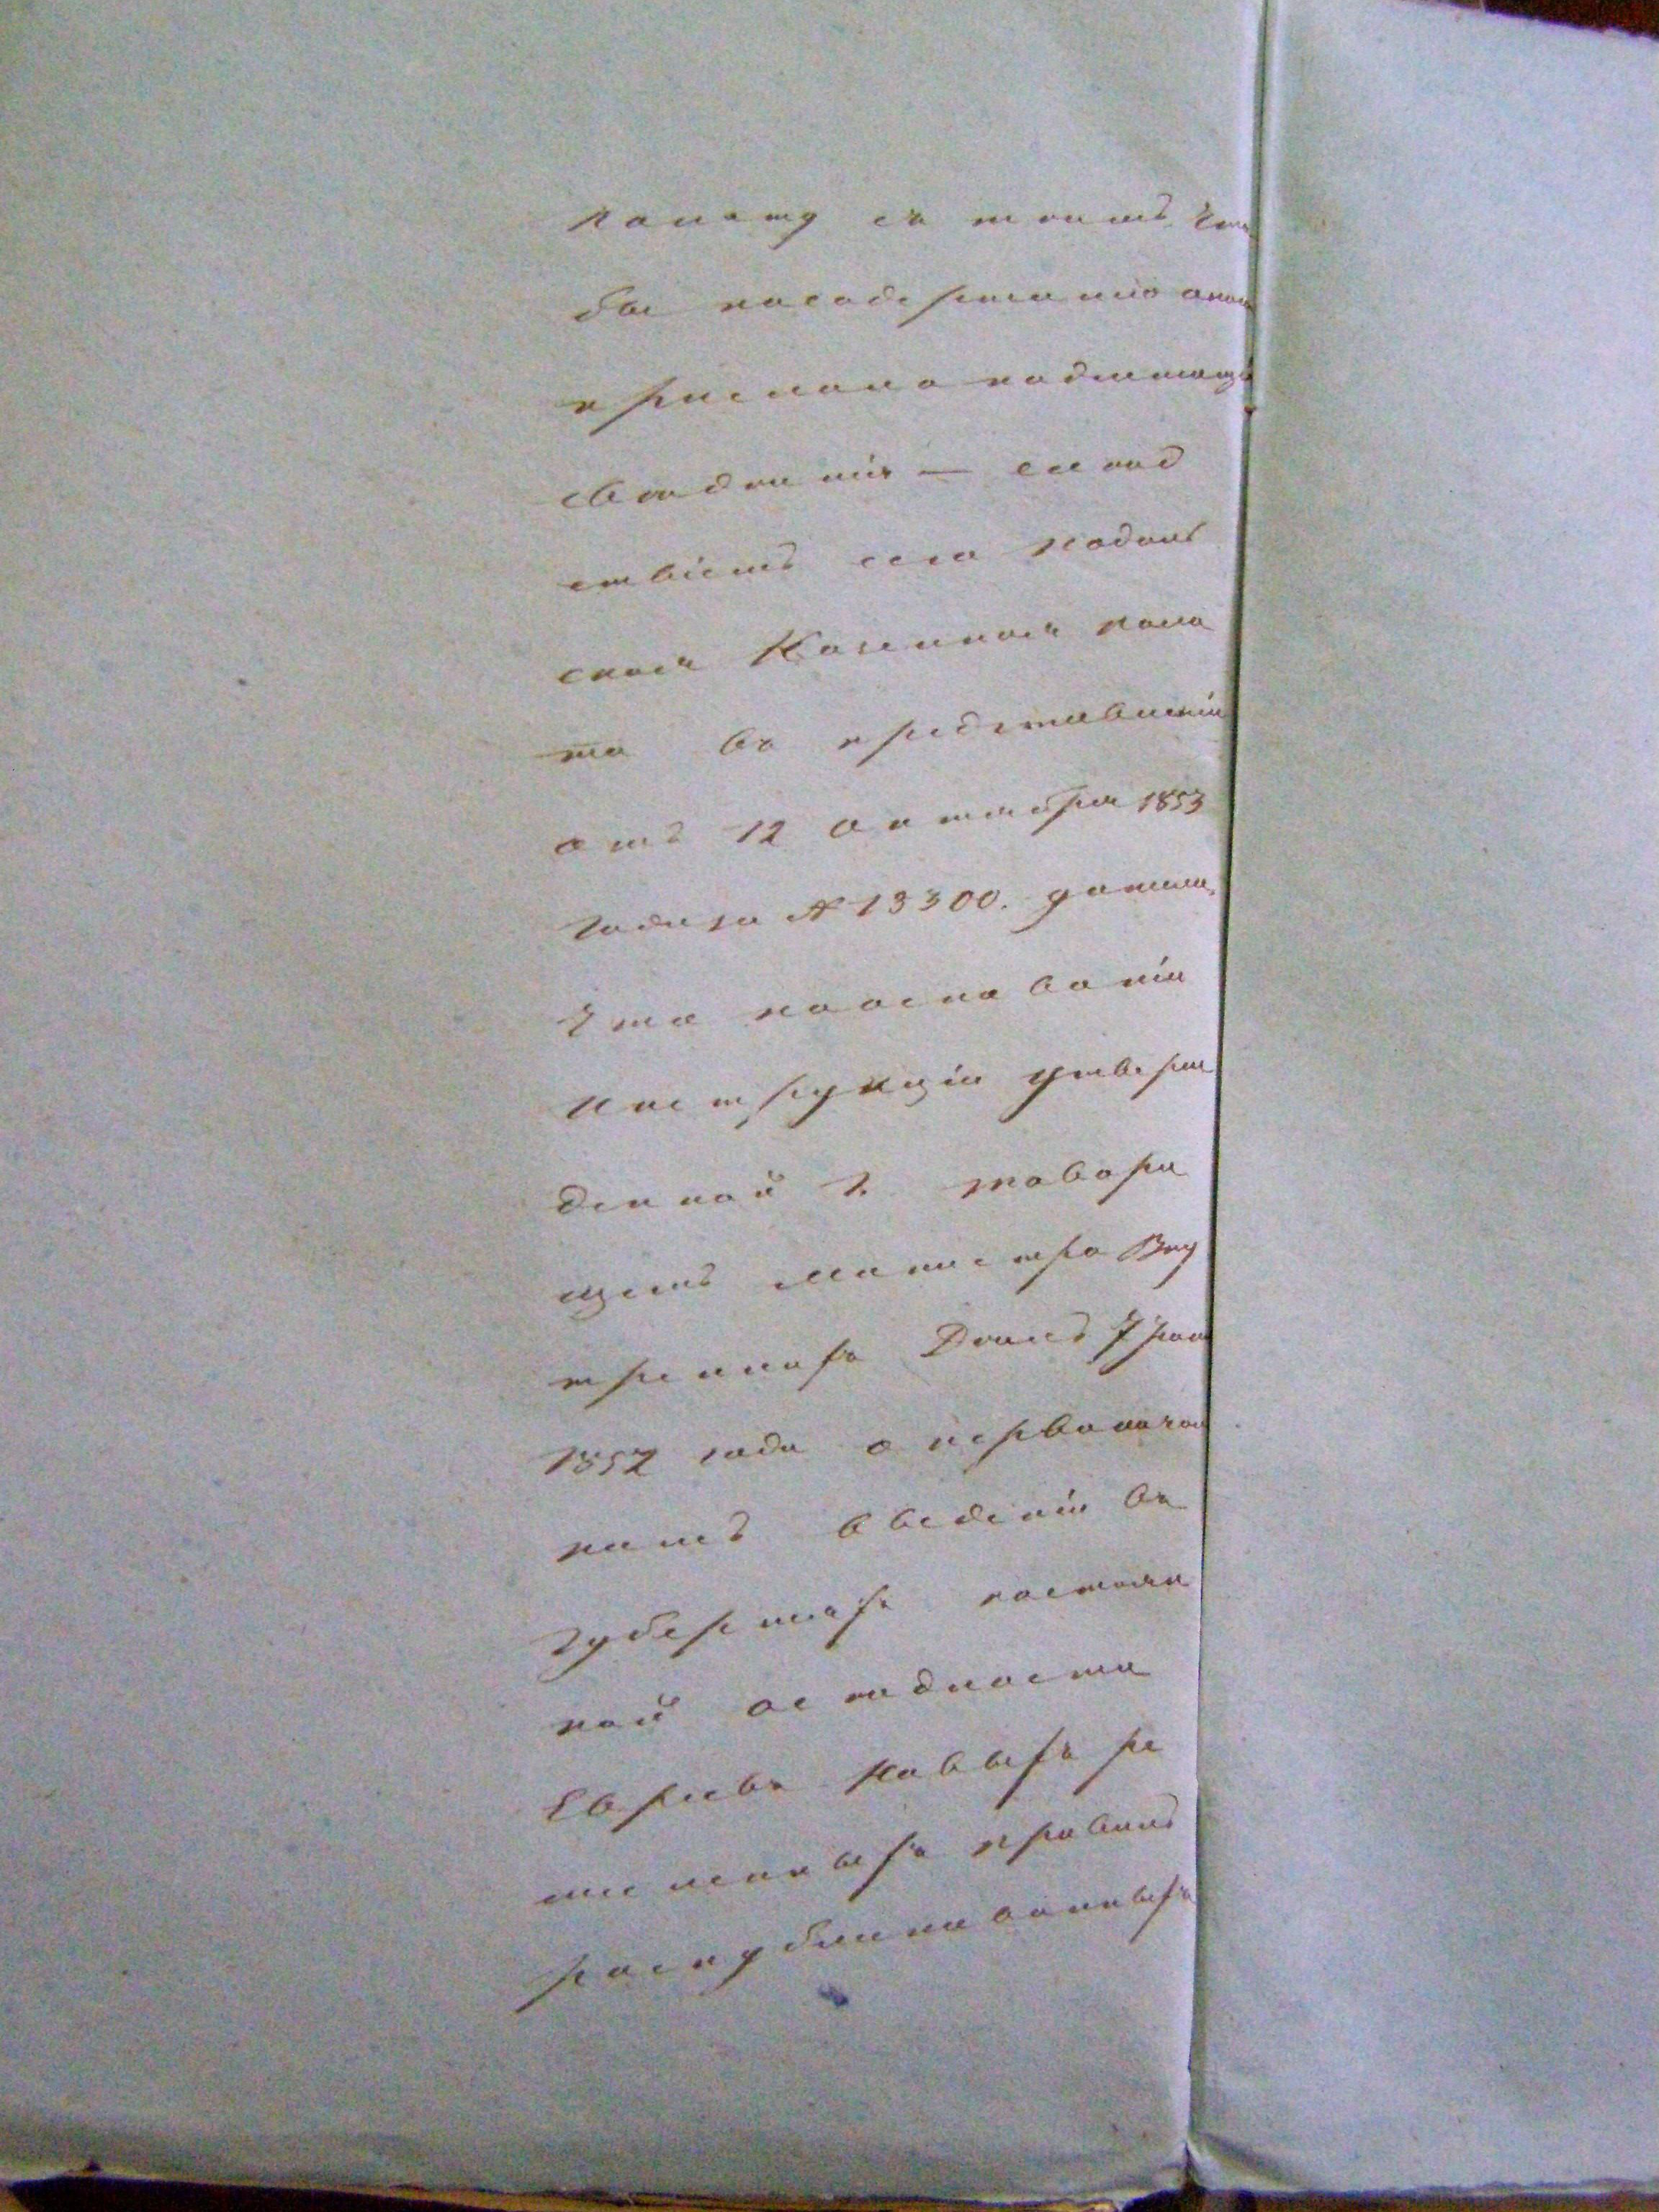 палату съ тѣмъ, что
бы по содержанію оной
прислана надлежащія
свѣдѣнія —
ствіемъ сего Подоль
ская Казенная пала
та въ представленіи
отъ 12 октября 1853
года за № 13300. донесла,
что на основаніи
инструкціи утверж
денной г. товари
щемъ Министра Вну
треннихъ Дѣлъ 7
1852 года о первоначаль
номъ введеніи въ
губерніяхъ
ной осѣдлости
Евреевъ новыхъ ре
правилъ
распубликованныхъ